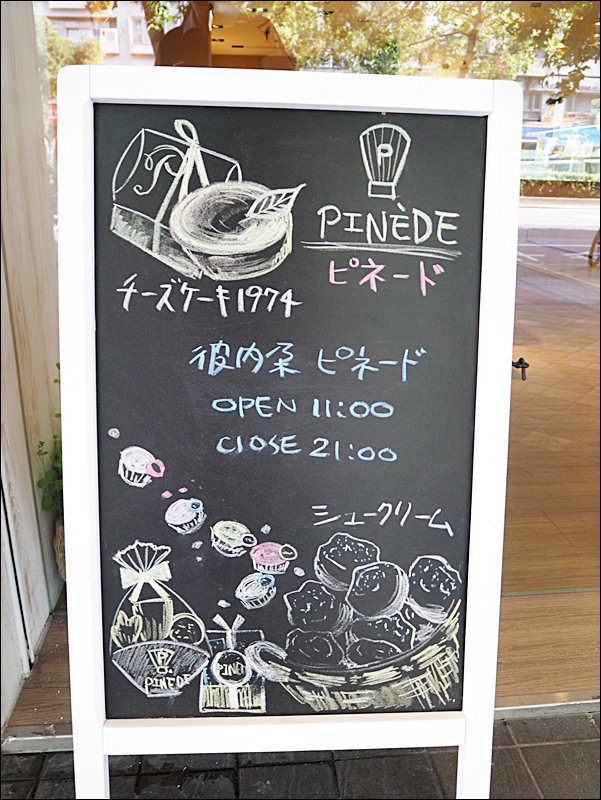 P
PINÈDE
ピネード
チーズケーキ1974
彼内朶 ピネード
OPEN 11:00
CLOSE 21:00
シュークリーム
PINÈDE
PINÈDE